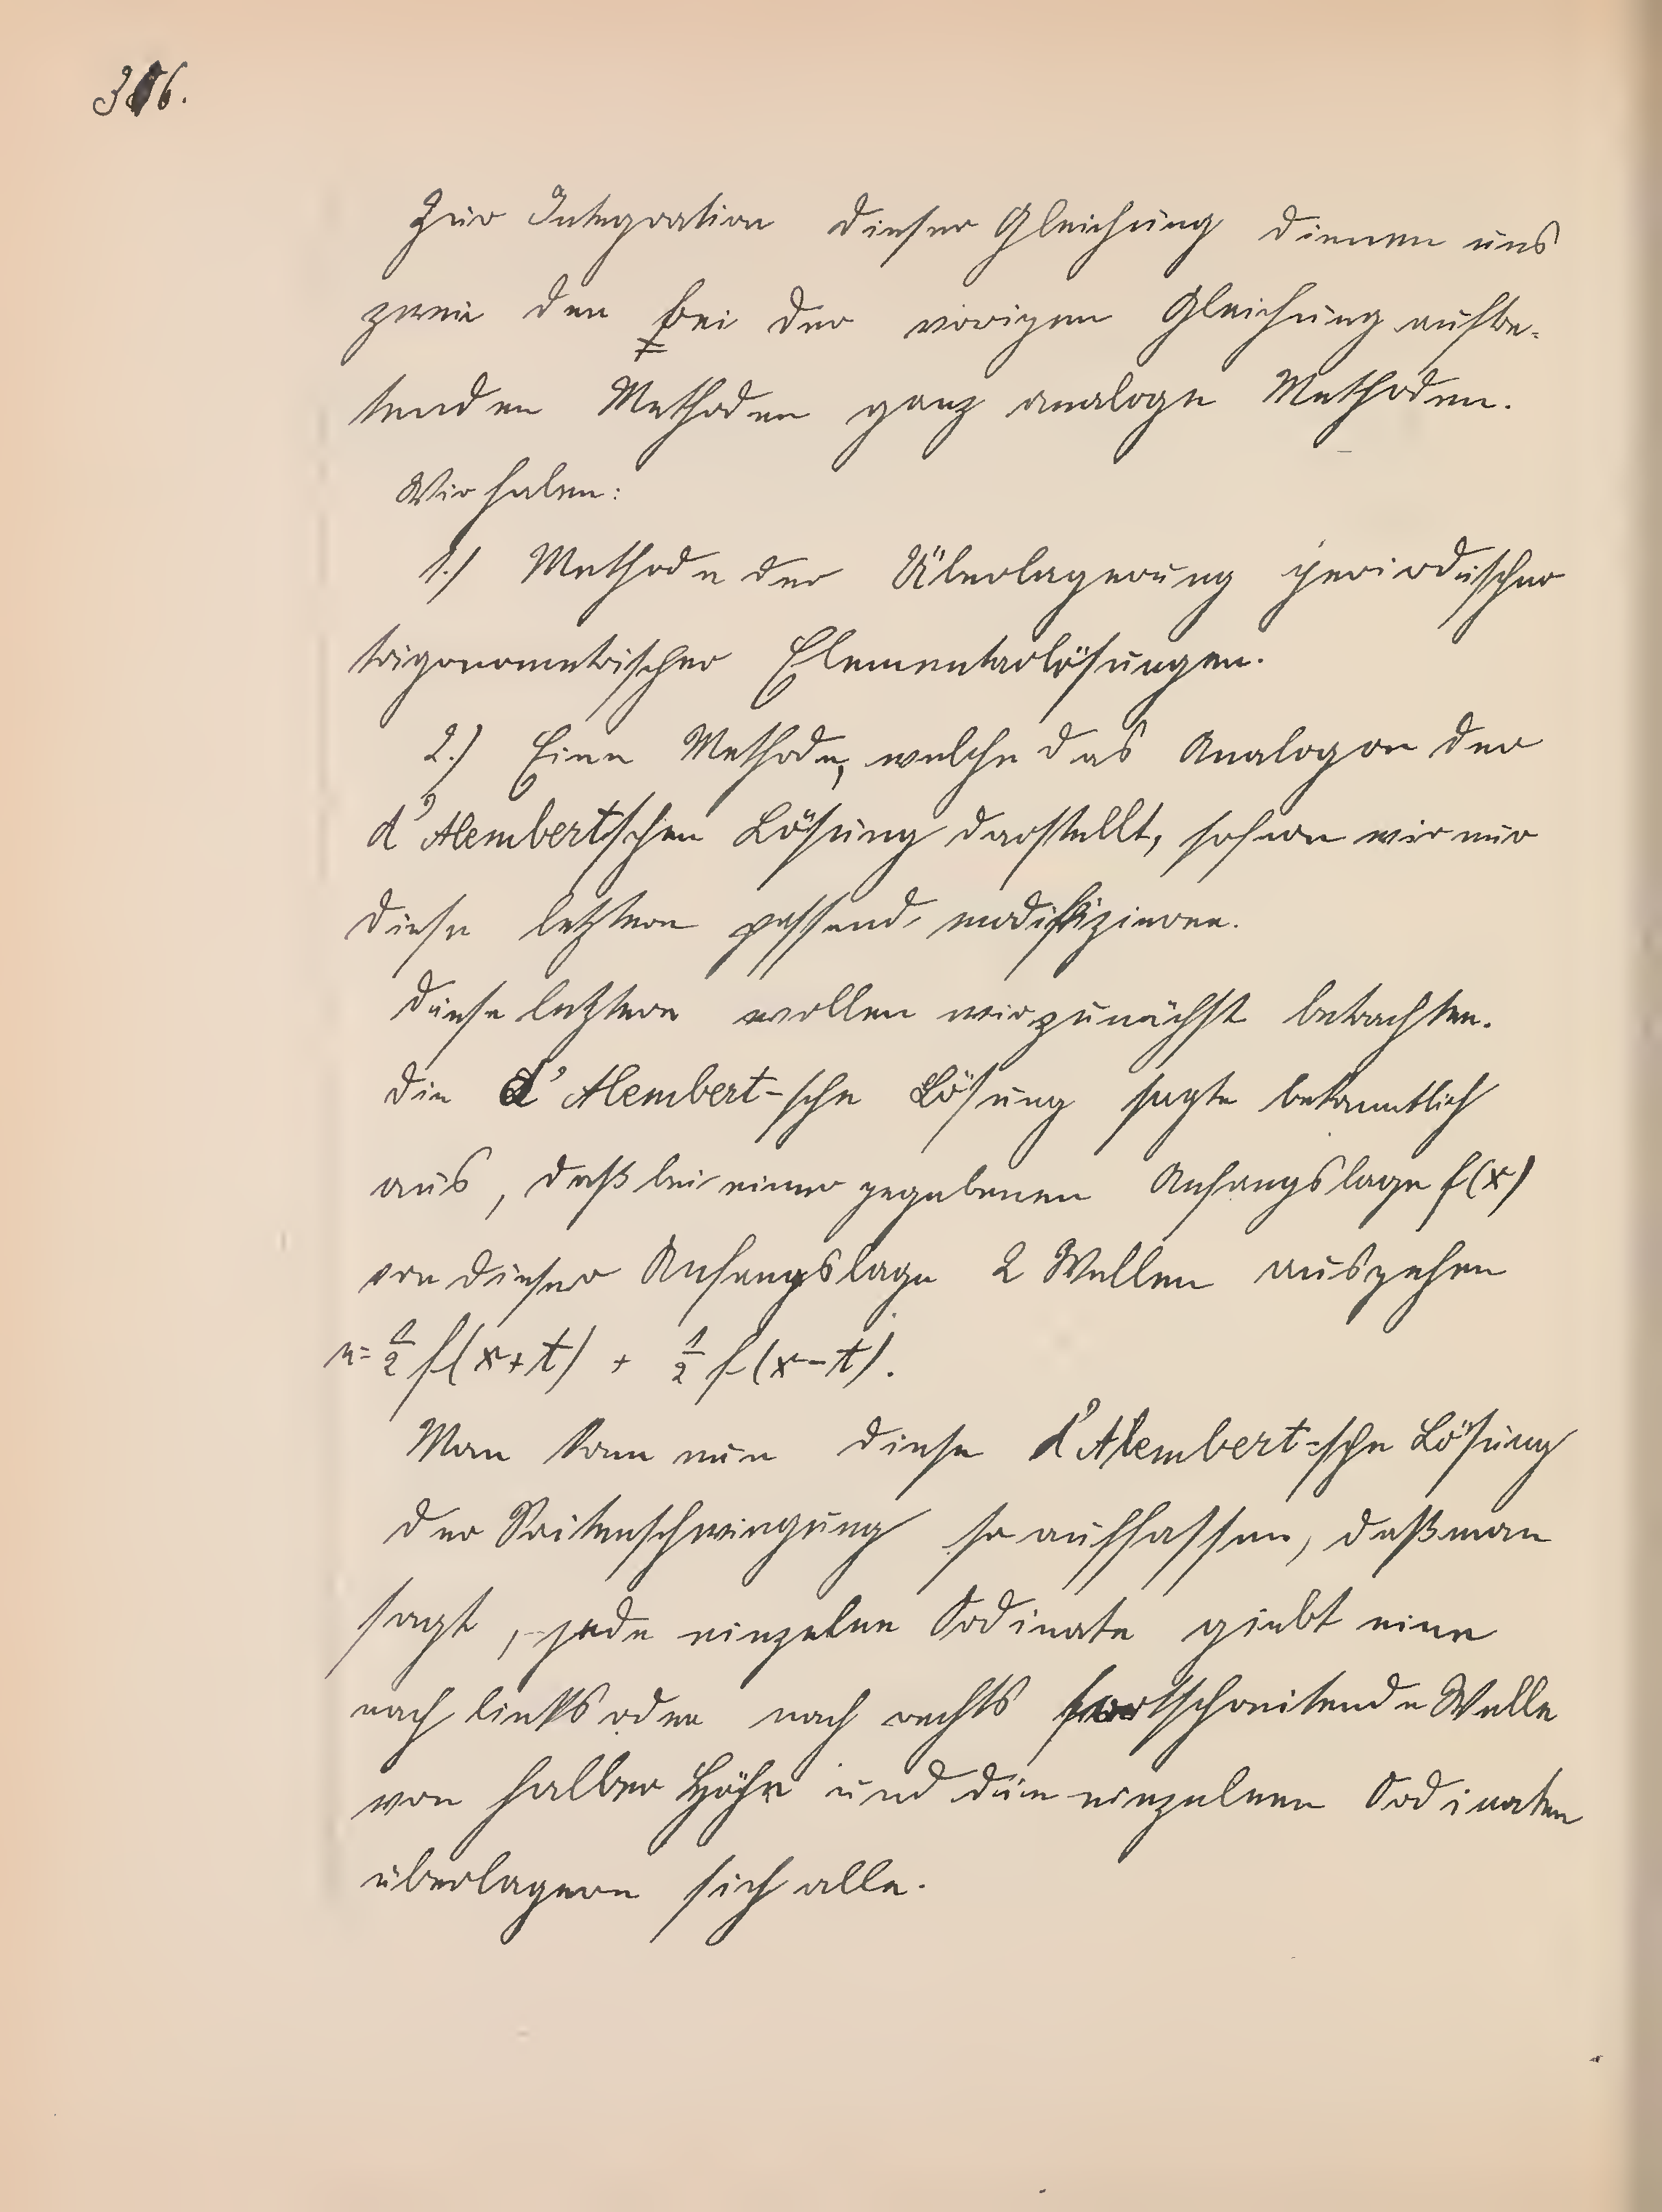 316.
Zur Integration dieser Gleichung dienen uns
zwei den bei der vorigen Gleichung auftre-
tenden Methoden ganz analoge Methoden.
Wir haben:
1.) Methode der Überlagerung periodischer
trigonometrischer Elementarlösungen.
2.) Eine Methode, welche das Analogon der
d'Alembertschen Lösung darstellt, sofern wir nur
diese letztere passend modifizieren.
Diese letztere wollen wir zunächst betrachten.
Die d'Alembert-sche Lösung sagte bekanntlich
aus, daß bei einer gegebenen Anfangslage f(x)
von dieser Anfangslage 2 Wellen ausgehen
u = 1/2 f(x+t) + 1/2 f(x-t).
Man kann nun diese d'Alembert-sche Lösung
der Saitenschwingung so auffassen, daß man
sagt, jede einzelne Ordinate giebt eine
nach links oder nach rechts fortschreitende Welle
von halber Höhe und die einzelnen Ordinaten
überlagern sich alle.